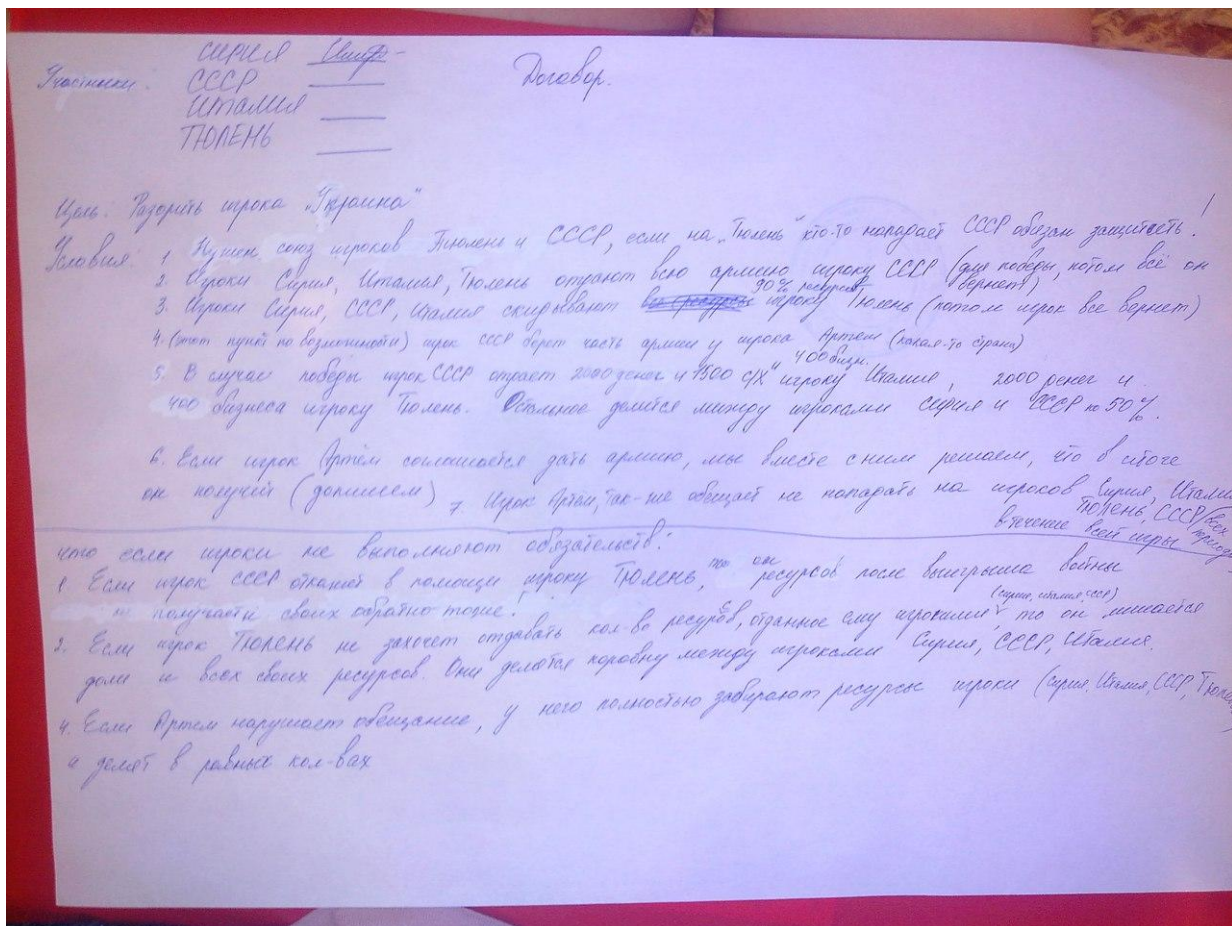 Участники:
СИРИЯ
СССР
ИТАЛИЯ
ТЮЛЕНЬ
Договор.
Цель: Разорить игрока „Украина"
Условия: 1. Нужен союз игроков Тюлень и СССР, если на „Тюлень" кто-то нападает СССР обязан защитить!
2. Игроки Сирия, Италия, Тюлень отдают всю армию игроку СССР (для победы, потом всё он вернет)
3. Игроки Сирия, СССР, Италия скидывают 90% ресурсов игроку Тюлень (потом игрок все вернет)
4. (этот пункт по возможности) игрок СССР берет часть армии у игрока Артем (какая-то страна)
5. В случае победы игрок СССР отдает 2000 денег и 1500 с/х 400 бизн. игроку Италия, 2000 денег и
400 бизнеса игроку Тюлень. Остальное делится между игроками Сирия и СССР по 50%.
6. Если игрок Артём соглашается дать армию, мы вместе с ним решаем, что в итоге
он получит (допишем) 7. Игрок Артём, так-же обещает не нападать на игроков Сирия, Италия
ТЮЛЕНЬ, СССР
в течение всей игры
что если игроки не выполняют обязательств:
1. Если игрок СССР откажет в помощи игроку Тюлень, то он ресурсов после выигрыша войны
получает и своих обратно тоже!
2. Если игрок Тюлень не захочет отдавать кол-во ресурсов, отданное ему игроками (Сирия, Италия, СССР), то он лишается
доли и всех своих ресурсов. Они делятся поровну между игроками Сирия, СССР, Италия.
4. Если Артем нарушает обещание, у него полностью забирают ресурсы игроки (Сирия, Италия, СССР, Тюлень)
и делят в равных кол-вах